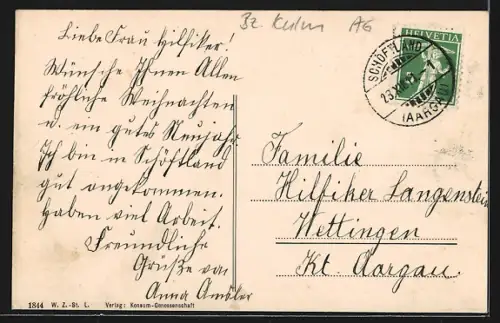 Bz. Kulm AG
Liebe Frau Hilfiker!
Wünsche Ihnen Allen
fröhliche Weihnachten
u. ein gutes Neujahr.
Ich bin in Schöftland
gut angekommen.
Haben viel Arbeit.
Freundliche
Grüsse von
Anna Amsler
HELVETIA
SCHÖFTLAND
(AARGAU)
Familie
Hilfiker Langenstein
Wettingen
Kt. Aargau.
1844 W. Z.-St. L. Verlag: Konsum-Genossenschaft